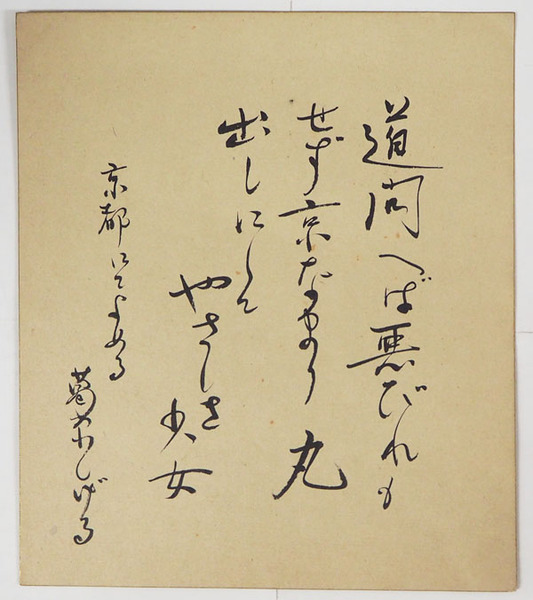 道問へば悪びれも
せず京なまり丸
出しにして
やさしき少女
京都にてよめる
葛原しげる